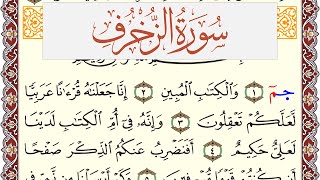 سُورَةُ الزُّخْرُفِ
حمٓ ١ وَالْكِتَٰبِ الْمُبِينِ ٢ إِنَّا جَعَلْنَٰهُ قُرْءَٰنًا عَرَبِيًّا
لَّعَلَّكُمْ تَعْقِلُونَ ٣ وَإِنَّهُۥ فِىٓ أُمِّ الْكِتَٰبِ لَدَيْنَا
لَعَلِىٌّ حَكِيمٌ ٤ أَفَنَضْرِبُ عَنكُمُ الذِّكْرَ صَفْحًا